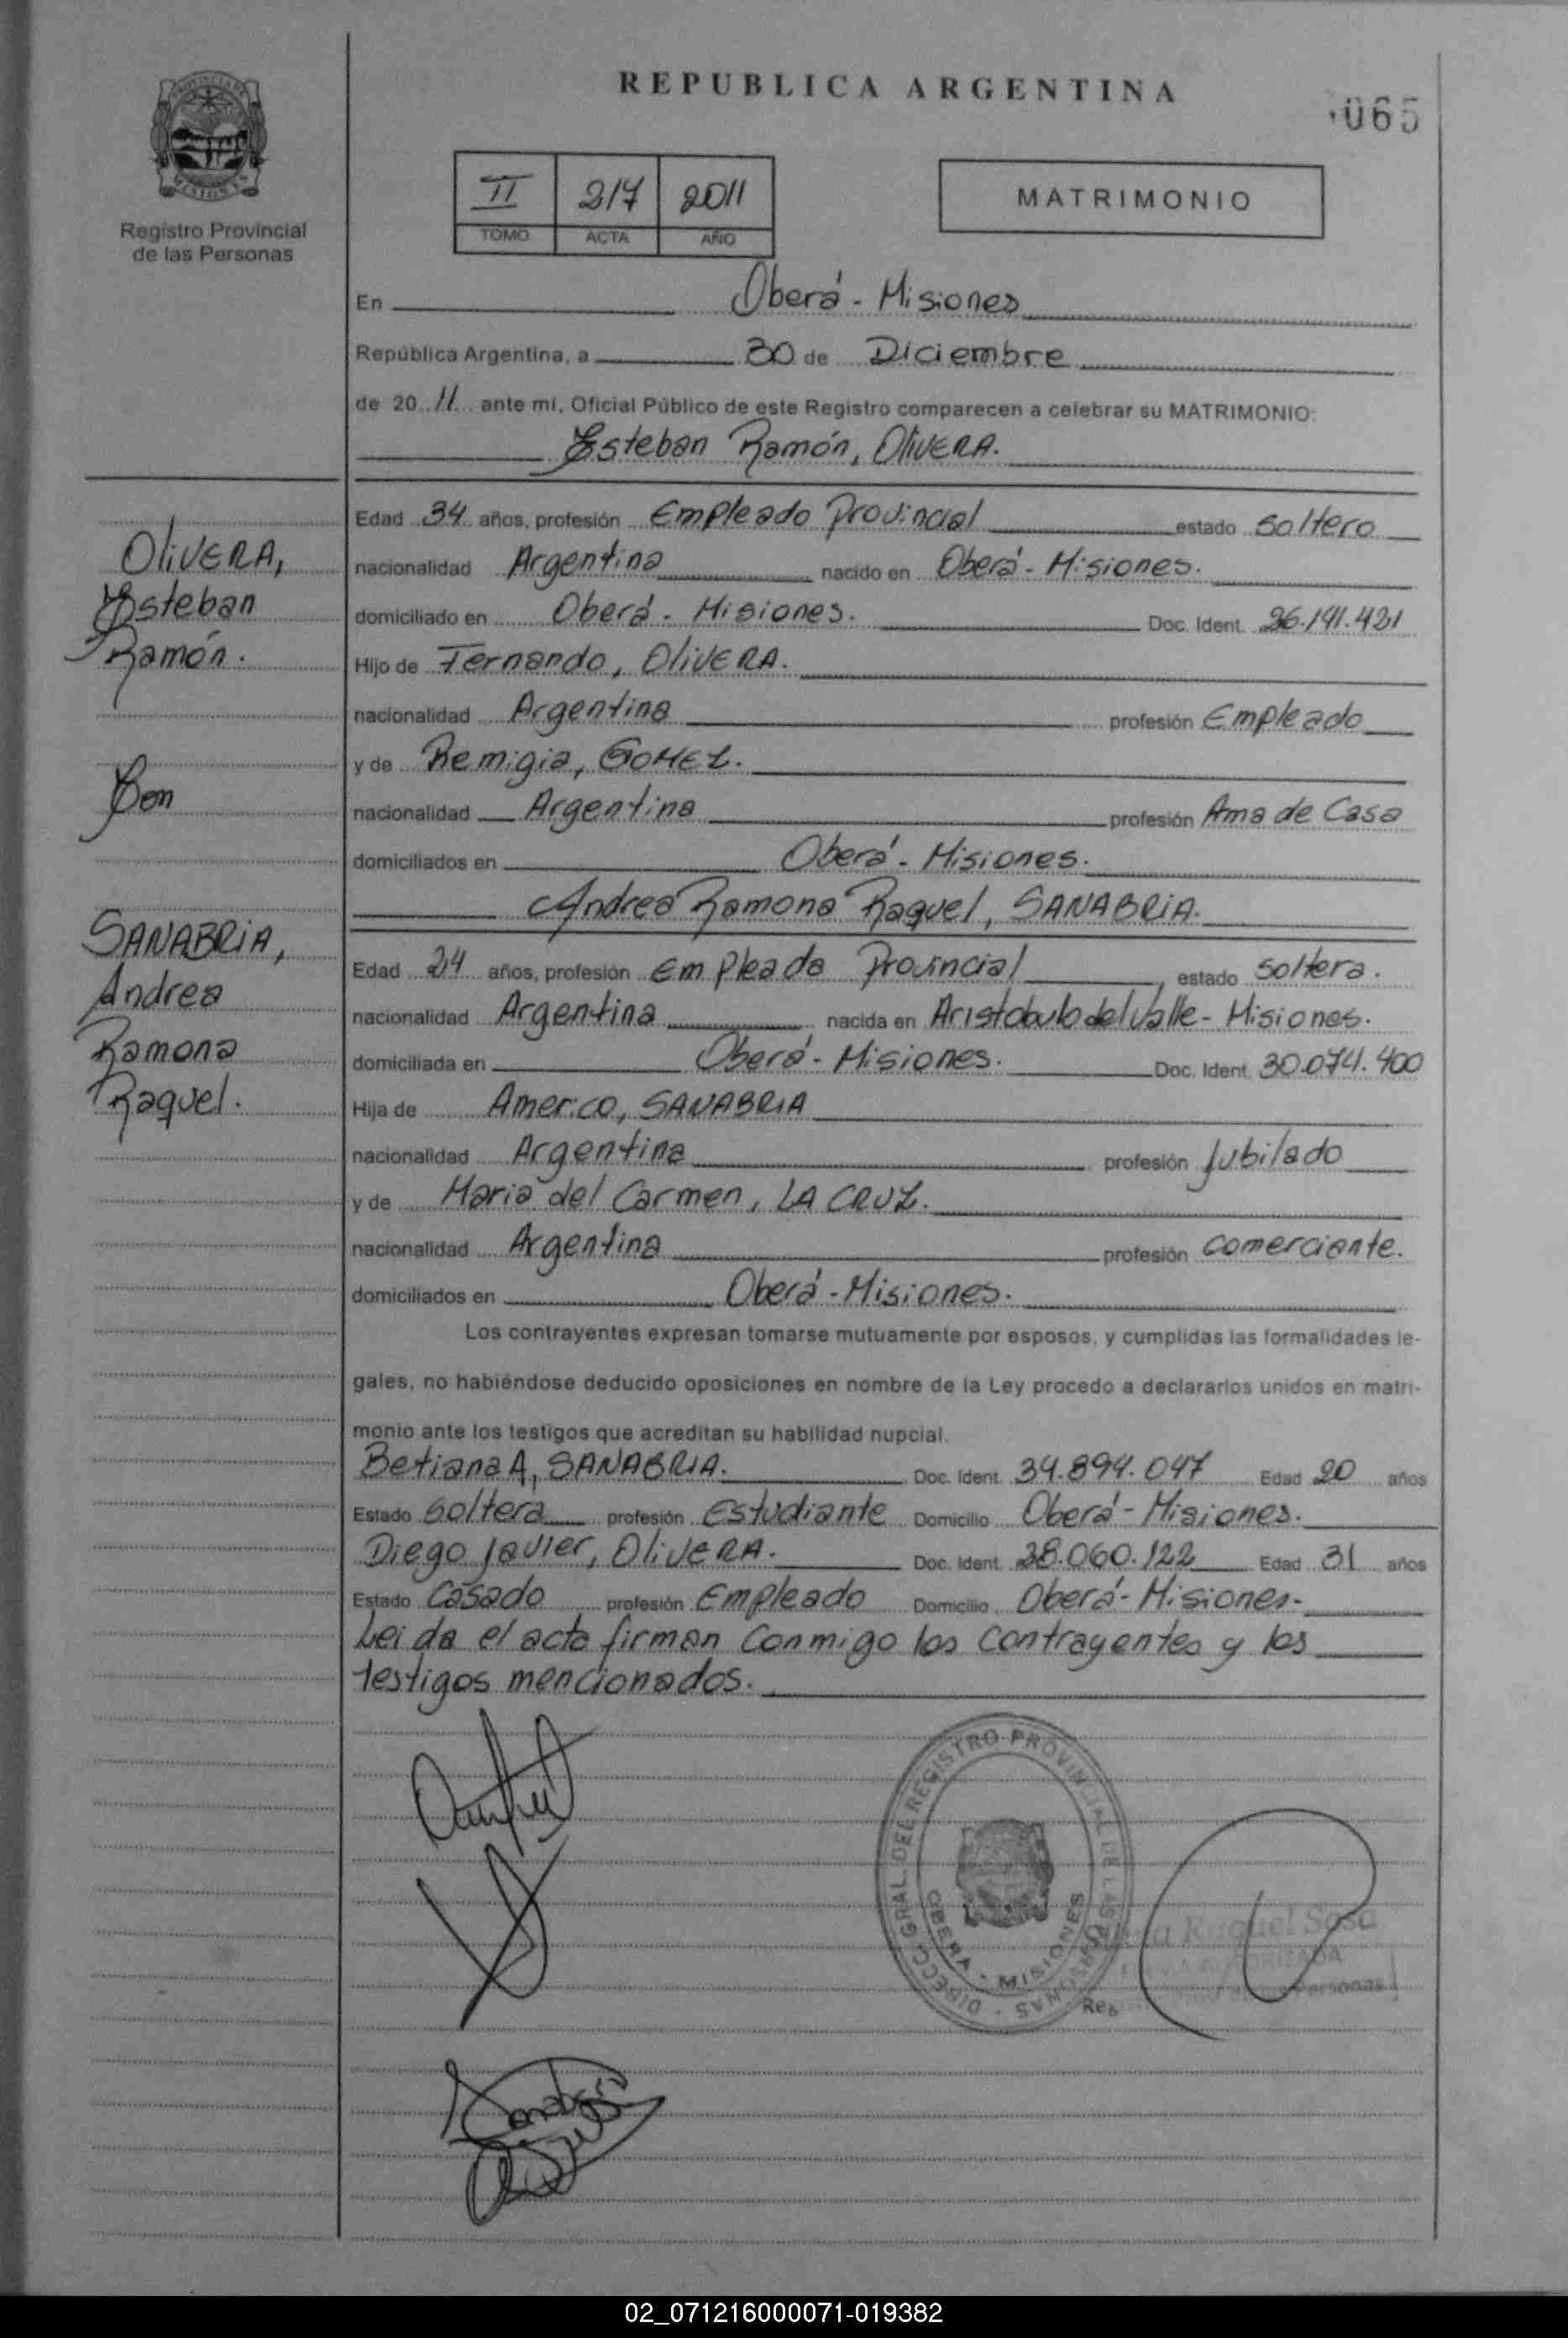 REPUBLICA ARGENTINA
065
PROVINCIA DE
MISIONES
Registro Provincial
de las Personas
II 217 2011
TOMO ACTA AÑO
MATRIMONIO
En Oberá - Misiones
República Argentina, a 30 de Diciembre
de 20 11 ante mí, Oficial Público de este Registro comparecen a celebrar su MATRIMONIO:
Esteban Ramón, OLIVERA.
Edad 34 años, profesión Empleado Provincial estado Soltero
nacionalidad Argentina nacido en Oberá - Misiones.
domiciliado en Oberá - Misiones. Doc. Ident. 26.191.421
Hijo de Fernando, OLIVERA.
nacionalidad Argentina profesión Empleado
y de Remigia, GOMEZ.
nacionalidad Argentina profesión Ama de Casa
domiciliados en Oberá - Misiones.
Andrea Ramona Raquel, SANABRIA.
Edad 24 años, profesión Empleada Provincial, estado Soltera.
nacionalidad Argentina nacida en Aristobulo del Valle - Misiones.
domiciliada en Oberá - Misiones. Doc. Ident. 30.074.400
Hija de Americo, SANABRIA
nacionalidad Argentina profesión Jubilado
y de Maria del Carmen, LA CRUZ.
nacionalidad Argentina profesión Comerciante.
domiciliados en Oberá - Misiones.
Los contrayentes expresan tomarse mutuamente por esposos, y cumplidas las formalidades le-
gales, no habiéndose deducido oposiciones en nombre de la Ley procedo a declararlos unidos en matri-
monio ante los testigos que acreditan su habilidad nupcial.
Betiana A, SANABRIA. Doc. Ident. 34.894.047 Edad 20 años
Estado Soltera profesión Estudiante Domicilio Oberá - Misiones.
Diego Javier, OLIVERA. Doc. Ident. 28.060.122 Edad 31 años
Estado Casado profesión Empleado Domicilio Oberá - Misiones.
Leida el acta firman Conmigo los Contrayentes y los
testigos mencionados.
OLIVERA,
Esteban
Ramón.
Con
SANABRIA,
Andrea
Ramona
Raquel.
DIRECC. GRAL. DEL REGISTRO PROVINCIAL DE LAS PERSONAS
OBERA - MISIONES
Raquel Sosa
Personas
02_071216000071-019382